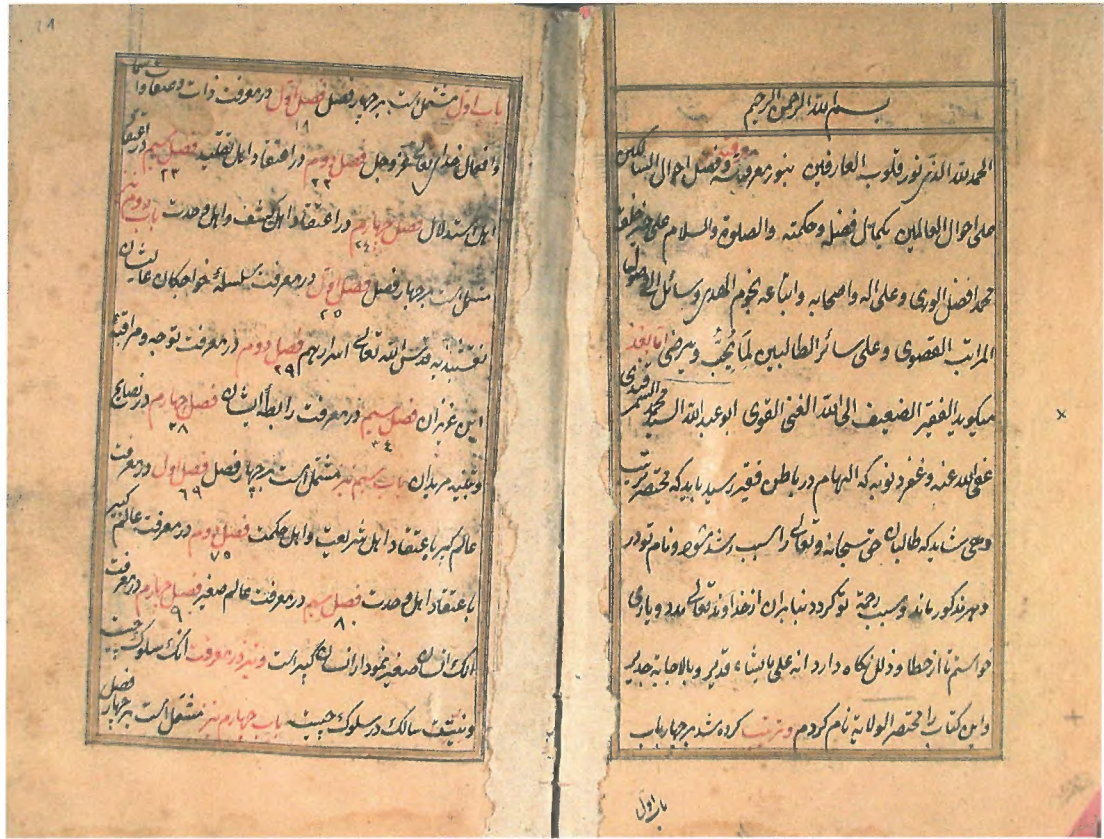 بسم الله الرحمن الرحیم
الحمد لله الذی نور قلوب العارفین بنور معرفته و فضل احوال السالکین
علی احوال العالمین بکمال فضل و حکمته والصلوة والسلام علی خیر خلقه
محمد افضل الوری و علی اله واصحابه واتباعه نجوم الهدی و سائل الی اصول
المراتب القصوی و علی سائر الطالبین لما یحب ویرضی اما بعد
میکوید الفقیر الضعیف الی الله الغنی القوی ابو عبدالله محمد السمرقندی
عفی الله عنه و غفر ذنوبه که الهام در باطن فقیر رسید باید که مختصر ترتیب
دهی شاید که طالبان حق سبحانه و تعالی را سبب رشد شود و نام تو در
دهر مذکور ماند و سبب رحمة تو کردد بنابران از خداوند تعالی مدد و یاری
خواستم تا از خطا و ذلل نکاه دارد انه علی مایشاء قدیر وبالاجابة جدیر
و این کتاب را مختصر الولایة نام کردم و ترتیب کرده شد بر چهار باب
باب اول
باب اول مشتمل است بر چهار فصل فصل اول در معرفت ذات و صفات واسما
وافعال خدای تعالی عز و جل فصل دوم در اعتقاد اهل تقلید فصل سیم در اعتقاد
۱۸ ۲۲ ۲۳
اهل استدلال فصل چهارم در اعتقاد اهل کشف و اهل وحدت باب دوم نیز
۲٤
مشتمل است بر چهار فصل فصل اول در معرفت سلسلهٔ خواجکان عالیشان
۲۵
نقشبندیه قدس الله تعالی اسرارهم فصل دوم در معرفت توجه و مراقبه
۲۹
این عزیزان فصل سیم در معرفت رابطهٔ ایشان فصل چهارم در نصایح
۳٤ ۳۸
و تنبیه مریدان باب سیم نیز مشتمل است بر چهار فصل فصل اول در معرفت
۶۹
عالم کبیر باعتقاد اهل شریعت و اهل حکمت فصل دوم در معرفت عالم کبیر
۷۵
باعتقاد اهل وحدت فصل سیم در معرفت عالم صغیر فصل چهارم در معرفت
۸۰
انک انسان صغیر نمودار انسان کبیر است و نیز در معرفت انک سلوک چیست
و نیت سالک در سلوک چیست باب چهارم نیز مشتمل است بر چهار فصل